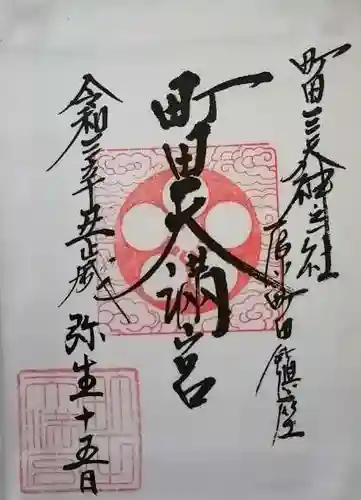 町田三天神之社
原町田鎮座
町田天満宮
令和三年丑歳
弥生十五日